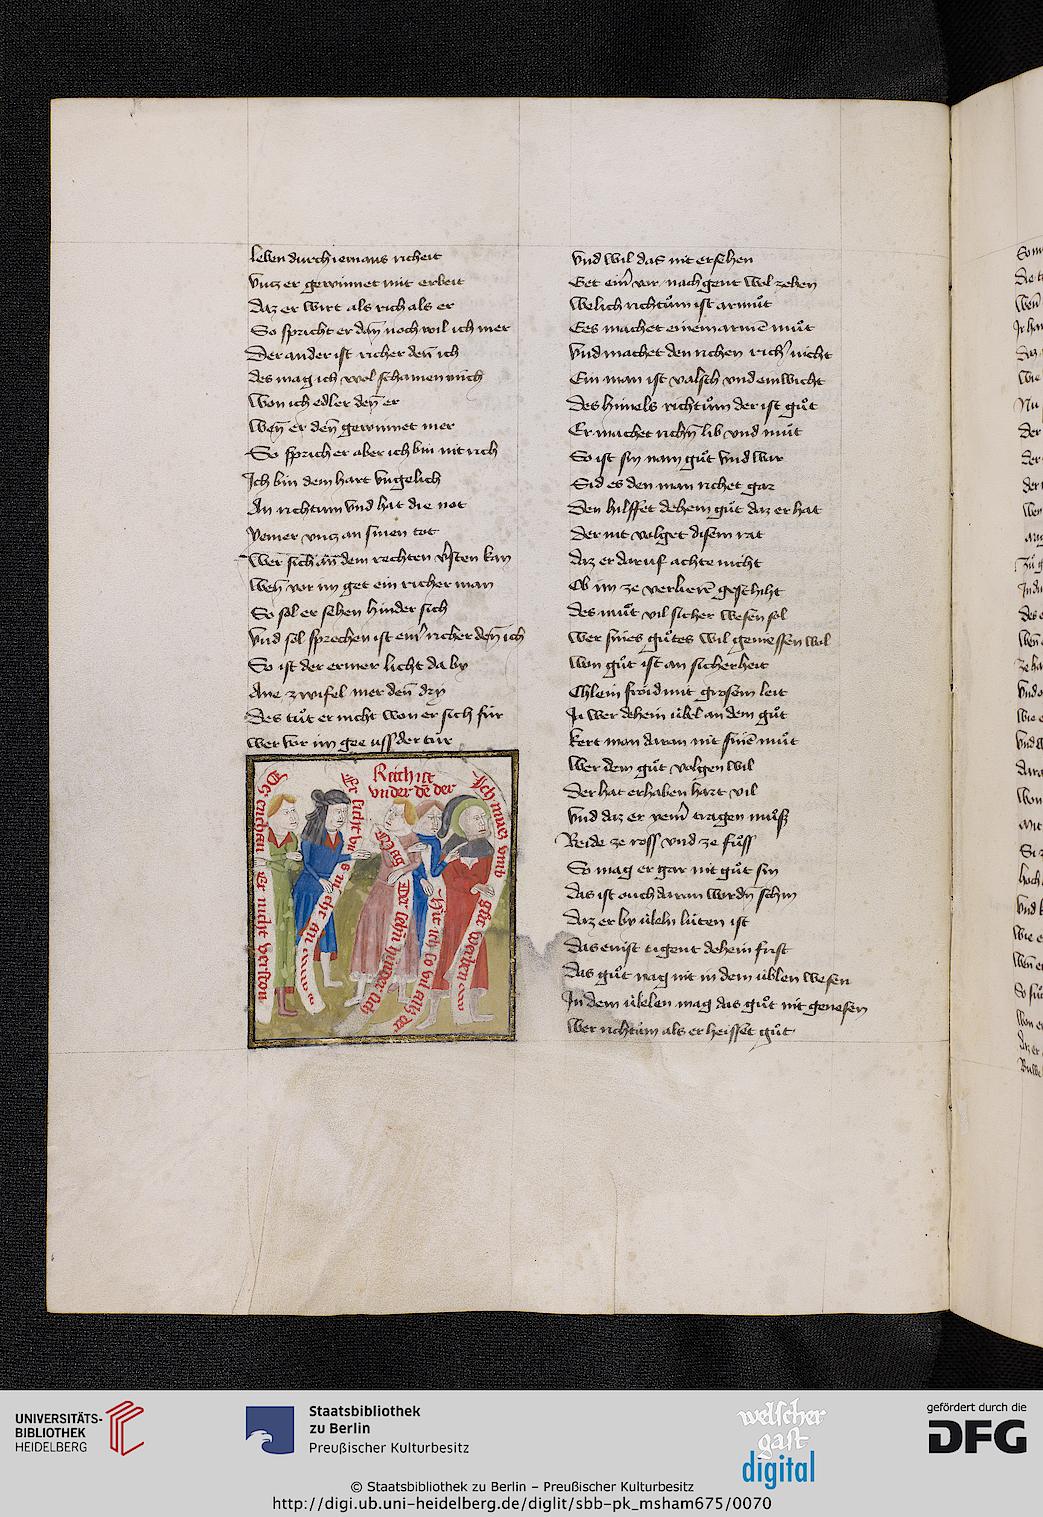 leben durch iemans richeit
vntz er gewinnet mit erbeit
daz er wirt als rich als er
So spricht er dañ noch wil ich mer
Der ander ist richer deñ ich
des mag ich wol schamen mich
won ich edler deñ er
weñ er deñ gewinnet mer
So sprich er aber ich bin nit rich
Ich bin dem hart vngelich
An richtum vnd hat die not
yemer vntz an sinen tot
wer sich an dem rechten kan
weñ vor im get ein richer man
So sol er sehen hinder sich
vnd sol sprechen ist ein richer deñ ich
So ist der ermer licht da by
Ane zwifel mer deñ dry
Des tůt er nicht won er sich für
wer vor im gee uss der tür
Reich ist
vnder de der
Er nicht verston
Mag
vnd wil das nit ersehen
Get ein vor nach gent wol zehen
welich richtům ist armůt
Ees machet einem armē můt
vnd machet den richen rich nicht
Ein man ist valsch vnd ein wicht
Des himels richtům der ist gůt
Er machet richñ lib vnd můt
So ist sin nam gůt vnd war
Sid es den man richet gar
Den hilffet dehein gůt daz er hat
Der nit volget disem rat
daz er daruf achte nicht
Ob im ze verlierē geschiht
des můt vil sicher wesen sol
wer sines gůtes wil geniessen wol
won gůt ist an sicherheit
Chlein fröid mit grosem leit
In wer dehein übel an dem gůt
kert man daran nit sinē můt
wer dem gůt volgen wil
der hat erhaben hart vil
vnd daz er yem̃ tragen můß
Beide ze ross vnd ze fůss
So mag er gar nit gůt sin
das ist ouch daran wordñ schin
daz er by übeln lüten ist
das enist tugent dehein frist
das gůt mag nit in dem üblen wesen
In dem übelen mag das gůt nit genesen
wer richtům als er heisset gůt
UNIVERSITÄTS-
BIBLIOTHEK
HEIDELBERG
Staatsbibliothek
zu Berlin
Preußischer Kulturbesitz
welscher
gast
digital
gefördert durch die
DFG
© Staatsbibliothek zu Berlin – Preußischer Kulturbesitz
http://digi.ub.uni-heidelberg.de/diglit/sbb-pk_msham675/0070